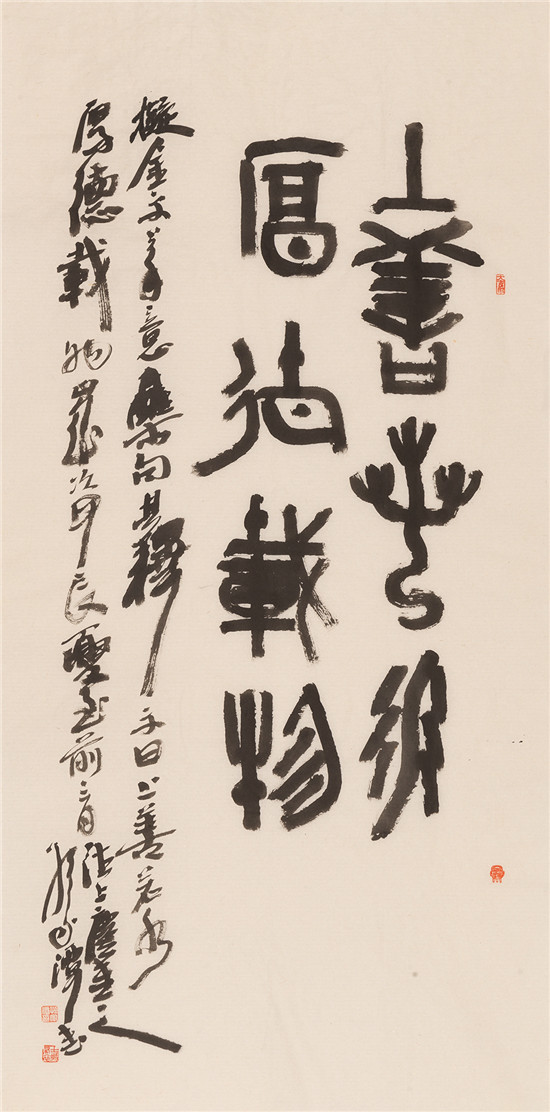 上善若水
厚德載物
擬金文筆意集句其釋文曰上善若水
厚德載物歲次甲辰夏至前三日
書